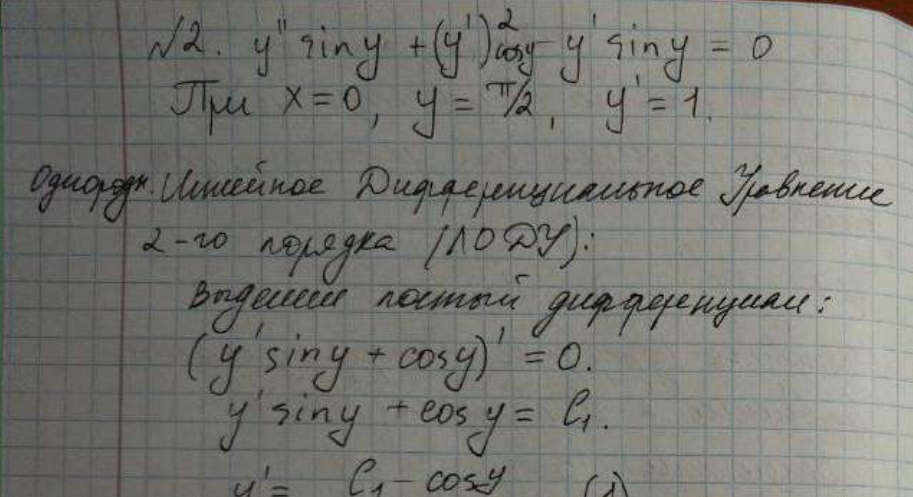 №2. y'' sin y + (y')² cos y - y' sin y = 0
При x=0, y = π/2, y' = 1.
Однородн. Линейное Дифференциальное Уравнение
2-го порядка (ЛОДУ):
Выделим полный дифференциал:
(y' sin y + cos y)' = 0.
y' sin y + cos y = C₁.
y' = C₁ - cos y (1)